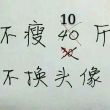 10
不瘦40斤
不换头像